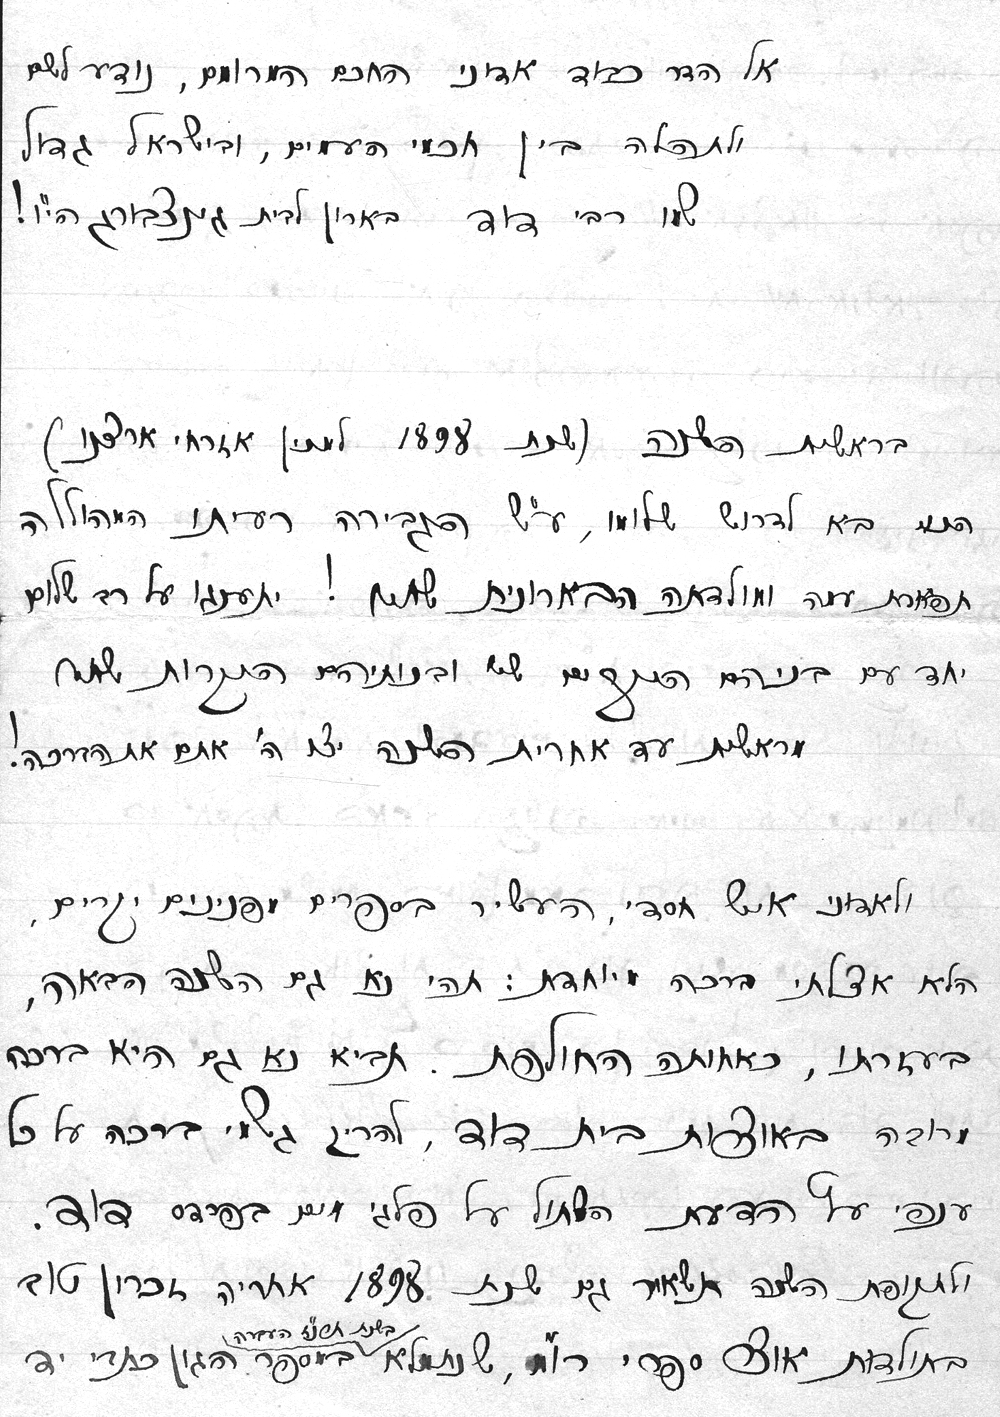 אל הדר כבוד אדוני החכם המרומם, נודע לשם
ולתהלה בין חכמי העמים, ובישראל גדול
שמו רבי דוד בארון לבית גינצבורג הי"ו!
בראשית השנה (שנת 1898 למנין אזרחי ארצנו)
הנני בא לדרוש שלומו, ע"ש הגבירה רעיתו המהוללה
תפארת עמה ומולדתה הבארונית שתחי' ! יתענגו על רב שלום
יחד עם בניהם הנקים שי' ובנותיהם היקרות שתחי'
מראשית עד אחרית השנה יצו ה' אתם את הברכה!
ולאדוני איש חסדי, העשיר בספרים מפנינים יקרים,
הלא אצלתי ברכה מיוחדת: תהי נא גם השנה הבאה,
בעזרתו, כאחותה החולפת. תביא נא גם היא ברכה
מרובה באוצרות בית דוד, להריק גשמי ברכה על כל
ענפי עץ הדעת השתול על פלגי מים בפרדס דוד.
ולתקופת השנה תשאיר גם שנת 1898 אחריה זכרון טוב
בשנת תרנ"ז העברה
בתולדות אוצר ספרי רו"מ, שנתמלא במספר הגון כתבי יד